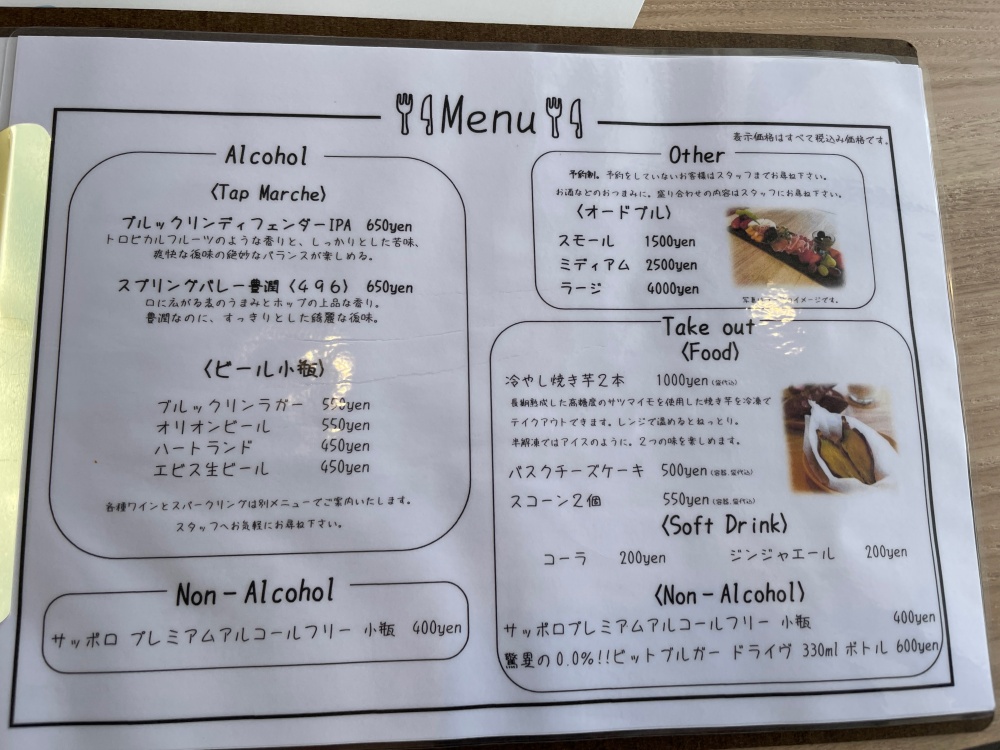 Menu
表示価格はすべて税込み価格です。
Alcohol
〈Tap Marche〉
ブルックリンディフェンダーIPA 650yen
トロピカルフルーツのような香りと、しっかりとした苦味、
爽快な後味の絶妙なバランスが楽しめる。
スプリングバレー豊潤〈496〉 650yen
口に広がる麦のうまみとホップの上品な香り。
豊潤なのに、すっきりとした綺麗な後味。
〈ビール小瓶〉
ブルックリンラガー 550yen
オリオンビール 550yen
ハートランド 450yen
エビス生ビール 450yen
各種ワインとスパークリングは別メニューでご案内いたします。
スタッフへお気軽にお尋ね下さい。
Non-Alcohol
サッポロ プレミアムアルコールフリー 小瓶 400yen
Other
予約制。予約をしていないお客様はスタッフまでお尋ね下さい。
お酒などのおつまみに。盛り合わせの内容はスタッフにお尋ね下さい。
〈オードブル〉
スモール 1500yen
ミディアム 2500yen
ラージ 4000yen
イメージです。
Take out
〈Food〉
冷やし焼き芋2本 1000yen(袋代込)
長期熟成した高糖度のサツマイモを使用した焼き芋を冷凍で
テイクアウトできます。レンジで温めるとねっとり。
半解凍ではアイスのように。2つの味を楽しめます。
バスクチーズケーキ 500yen(容器、袋代込)
スコーン2個 550yen(容器、袋代込)
〈Soft Drink〉
コーラ 200yen ジンジャエール 200yen
〈Non-Alcohol〉
サッポロプレミアムアルコールフリー 小瓶 400yen
驚異の0.0%!!ビットブルガー ドライヴ 330ml ボトル 600yen